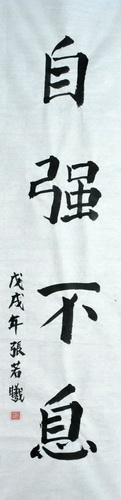 自强不息
戊戌年張若曦